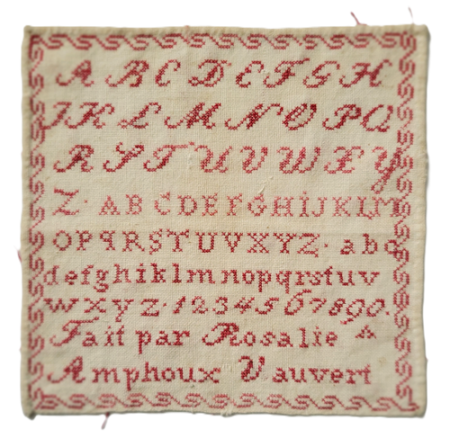 A B C D E F G H
I K L M N O P Q
R S T U V W X Y
Z · A B C D E F G H I J K L M
O P Q R S T U V X Y Z · a b c
d e f g h i k l m n o p q r s t u v
w x y z · 1 2 3 4 5 6 7 8 9 0 .
Fait par Rosalie à
Amphoux Vauvert